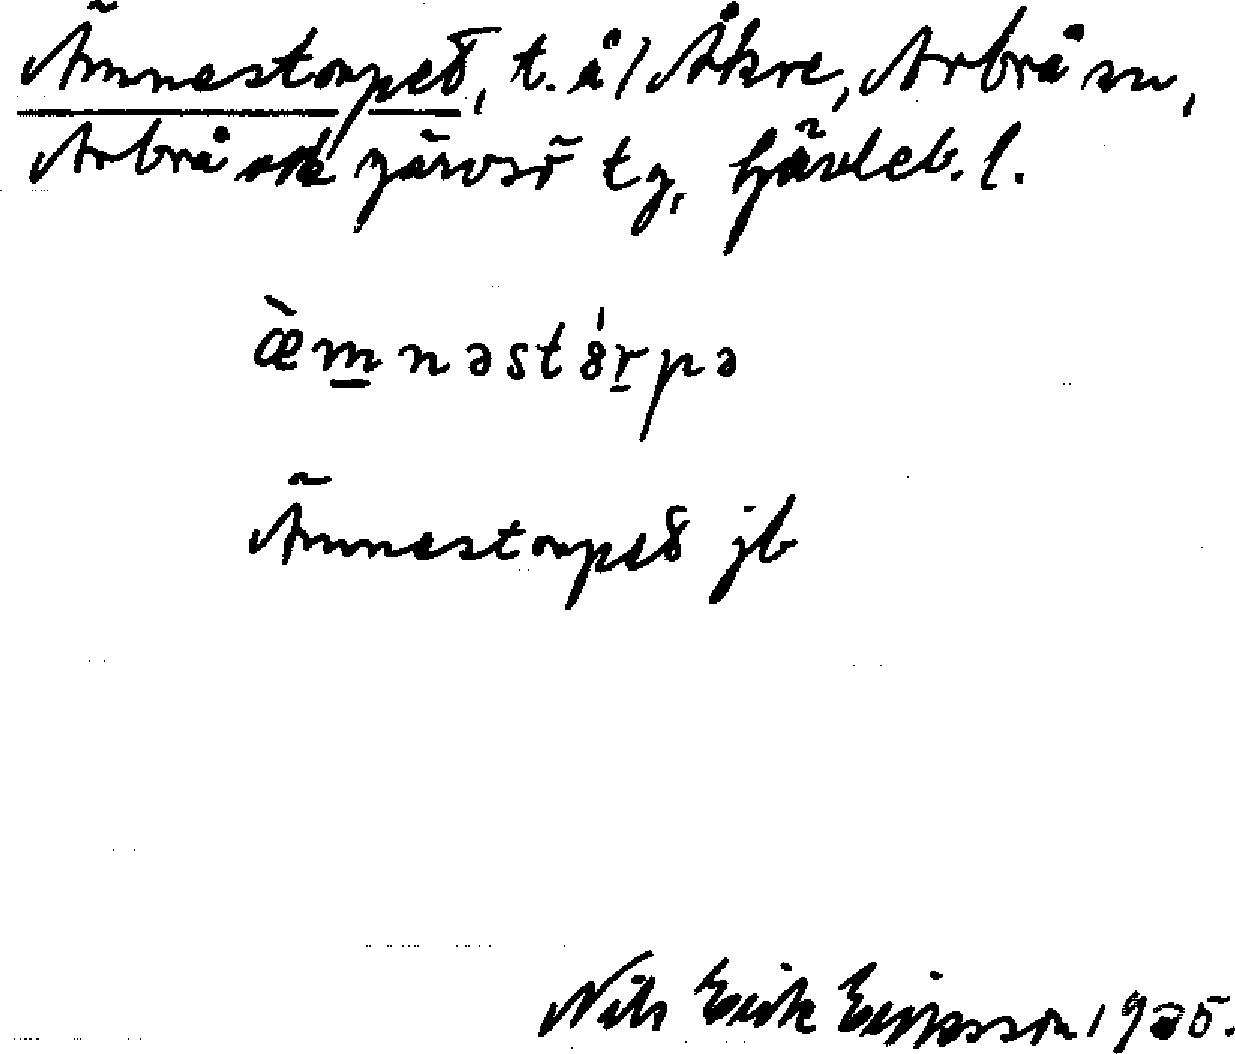 Ämnestorpet, t. å / Åkre, Arbrå sn,
Arbrå och Järvsö tg, Gävleb. l.
æ̀m̲nəstɞ́r̲pə
Ämnestorpet jb
Nils Erik Eriksson 1935.